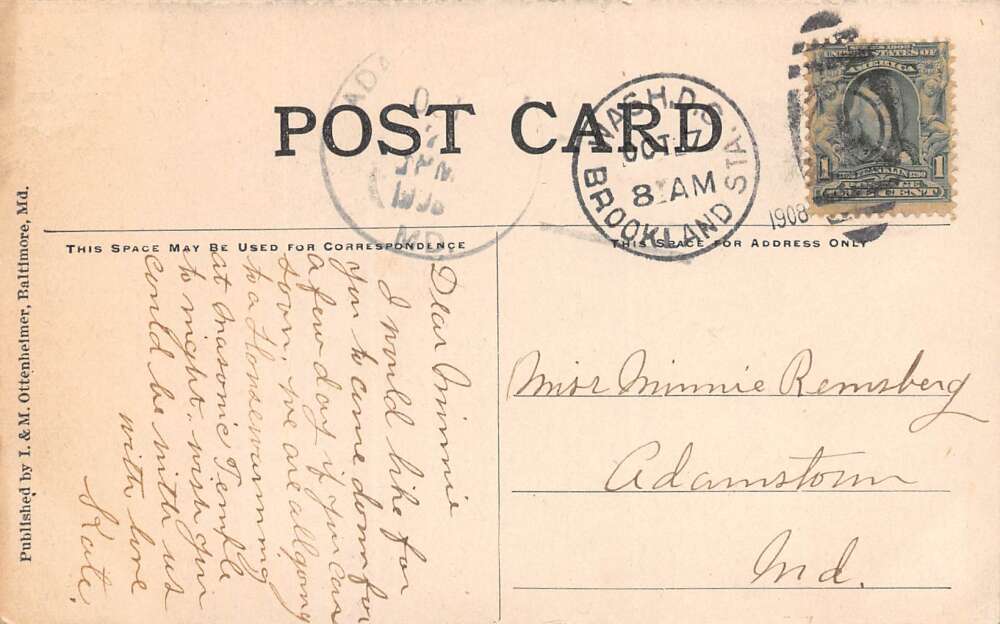 POST CARD
ADA
O
7
3 PM
1908
MD.
WASH. D.C.
OCT 17
8 AM
BROOKLAND STA.
1908
SERIES 1902
UNITED STATES OF
AMERICA
1 FRANKLIN 1
ONE CENT
THIS SPACE MAY BE USED FOR CORRESPONDENCE
THIS SPACE FOR ADDRESS ONLY
Published by I. & M. Ottenheimer, Baltimore, Md.
Dear Minnie
I would like for
you to come down for
a few day if you can
soon. We are all going
to a Housewarming
at Masonic Temple
to night. wish you
could be with us
with love
Kate.
Miss Minnie Remsberg
Adamstown
Md.